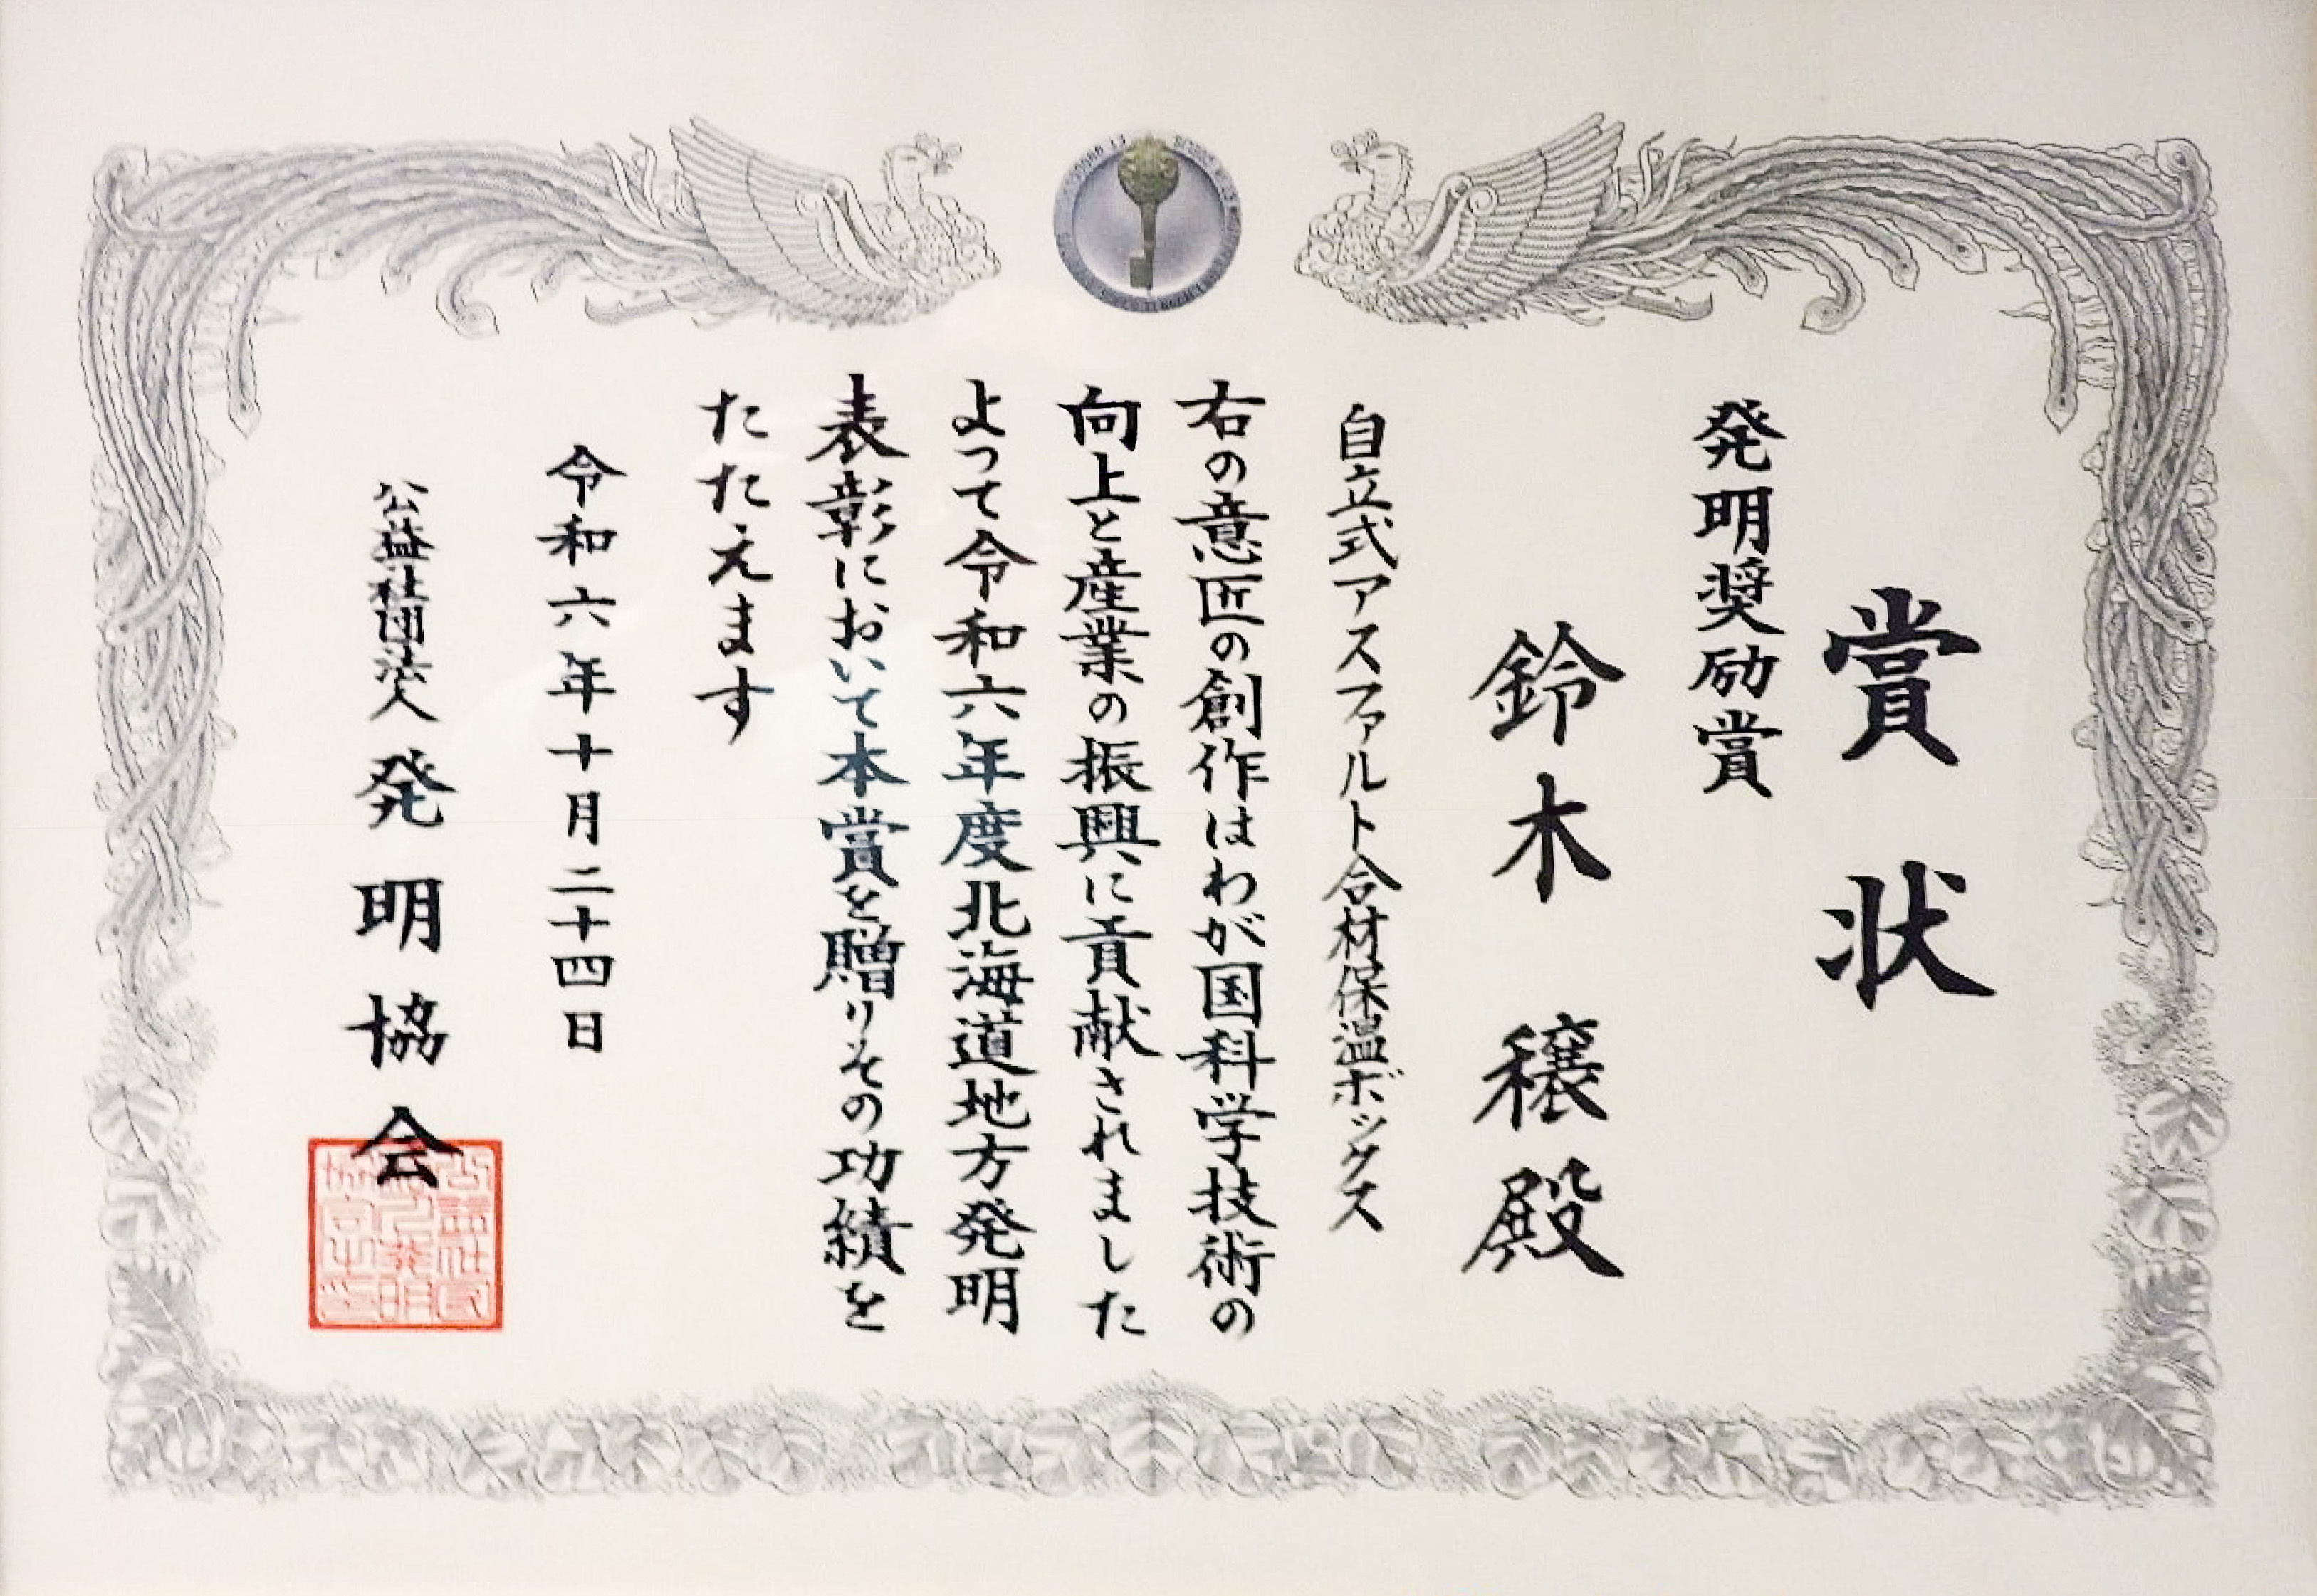 賞状
発明奨励賞
鈴木 穣 殿
自立式アスファルト合材保温ボックス
右の意匠の創作はわが国科学技術の
向上と産業の振興に貢献されました
よって令和六年度北海道地方発明
表彰において本賞を贈りその功績を
たたえます
令和六年十月二十四日
公益社団法人 発明協会